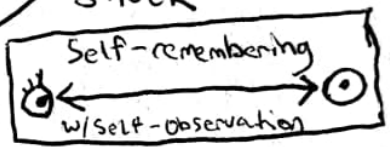 Self-remembering
w/ Self-observation